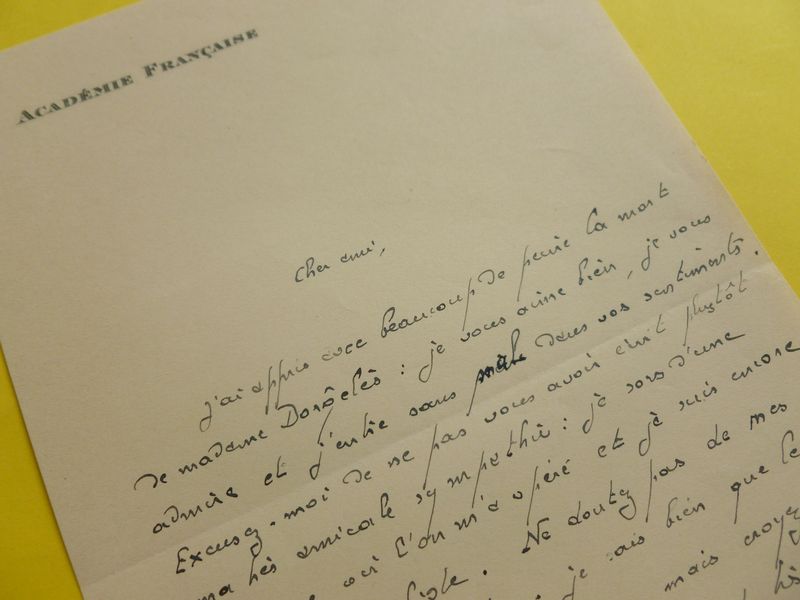 ACADÉMIE FRANÇAISE
Cher ami,
J'ai appris avec beaucoup de peine la mort
de madame Dorgelès : je vous aime bien, je vous
admire et j'entre sans mal dans vos sentiments.
Excusez-moi de ne pas vous avoir écrit plutôt
ma très amicale sympathie : je sors d'une
où l'on m'a opéré et je suis encore
. Ne doutez pas de mes
je sais bien que le
mais croyez